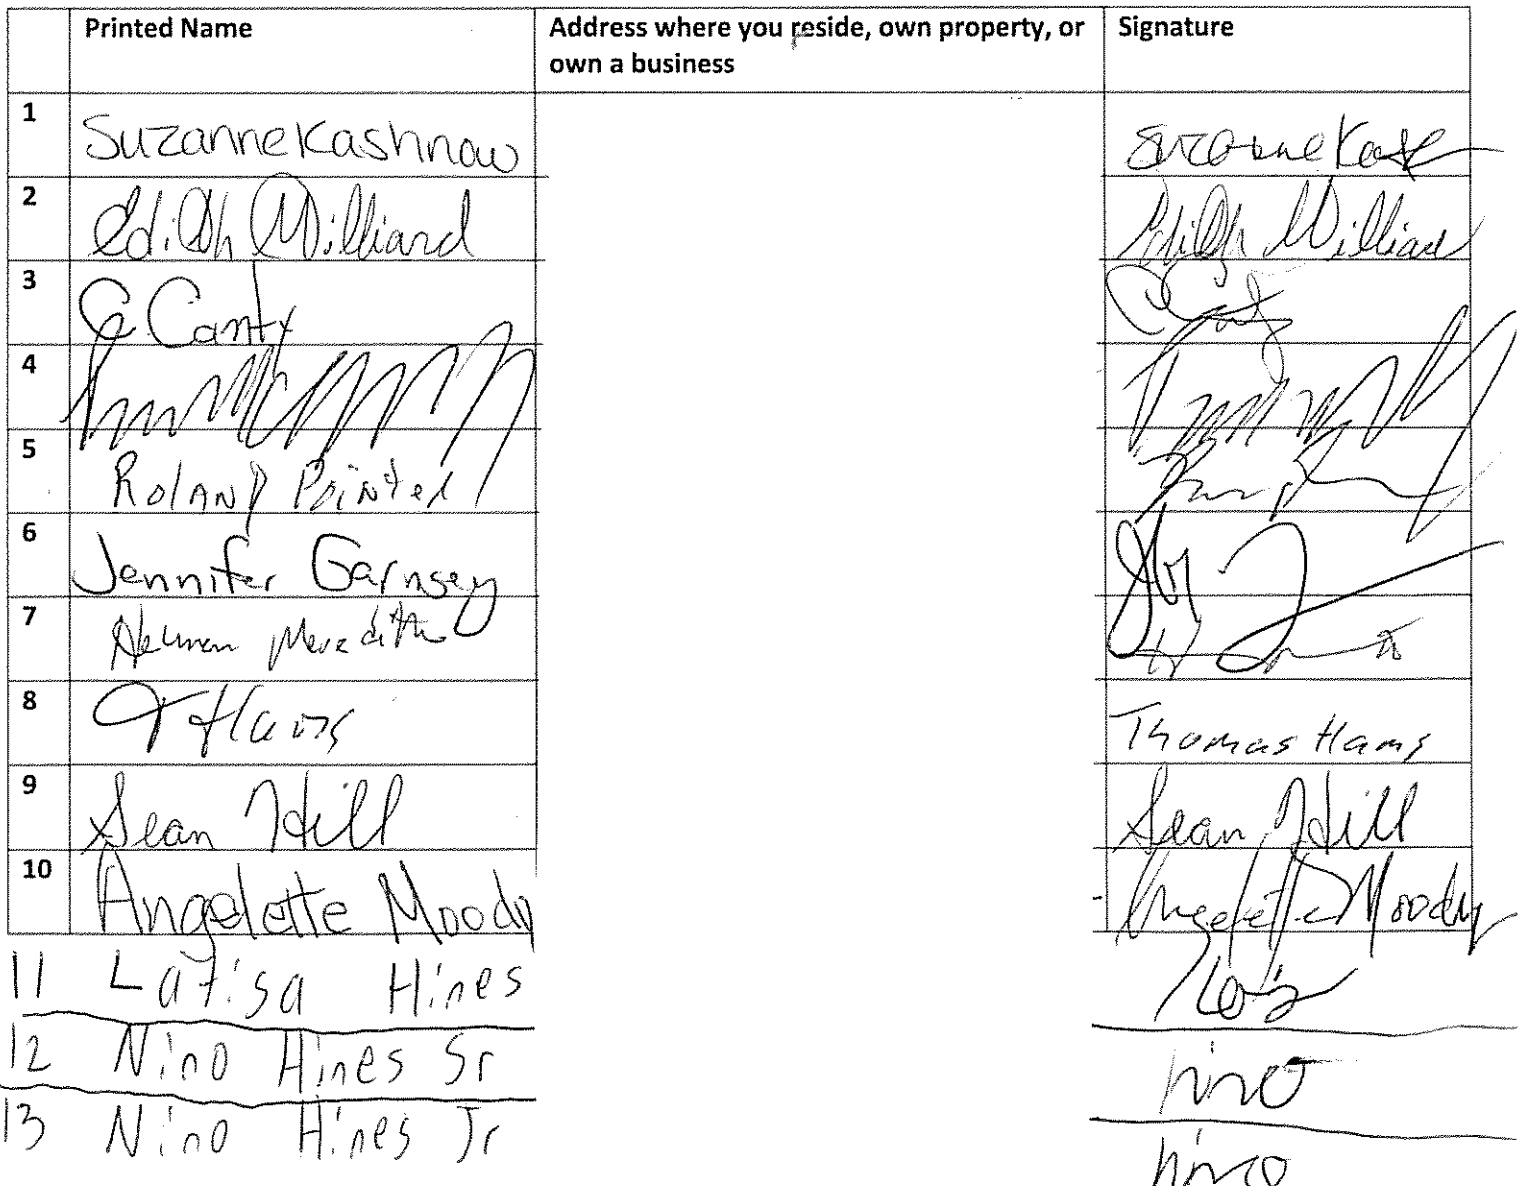 Printed Name Address where you reside, own property, or own a business Signature
1 Suzanne Kashnow Suzanne Kash
2 Edith Williard Edith Williard
3 C Canty C Canty
4
5 Roland Pointer
6 Jennifer Garnsey
7 Herman Meredith
8 T Hams Thomas Hams
9 Sean Hill Sean Hill
10 Angelette Moody Angelette Moody
11 Latisa Hines
12 Nino Hines Sr nino
13 Nino Hines Jr nino